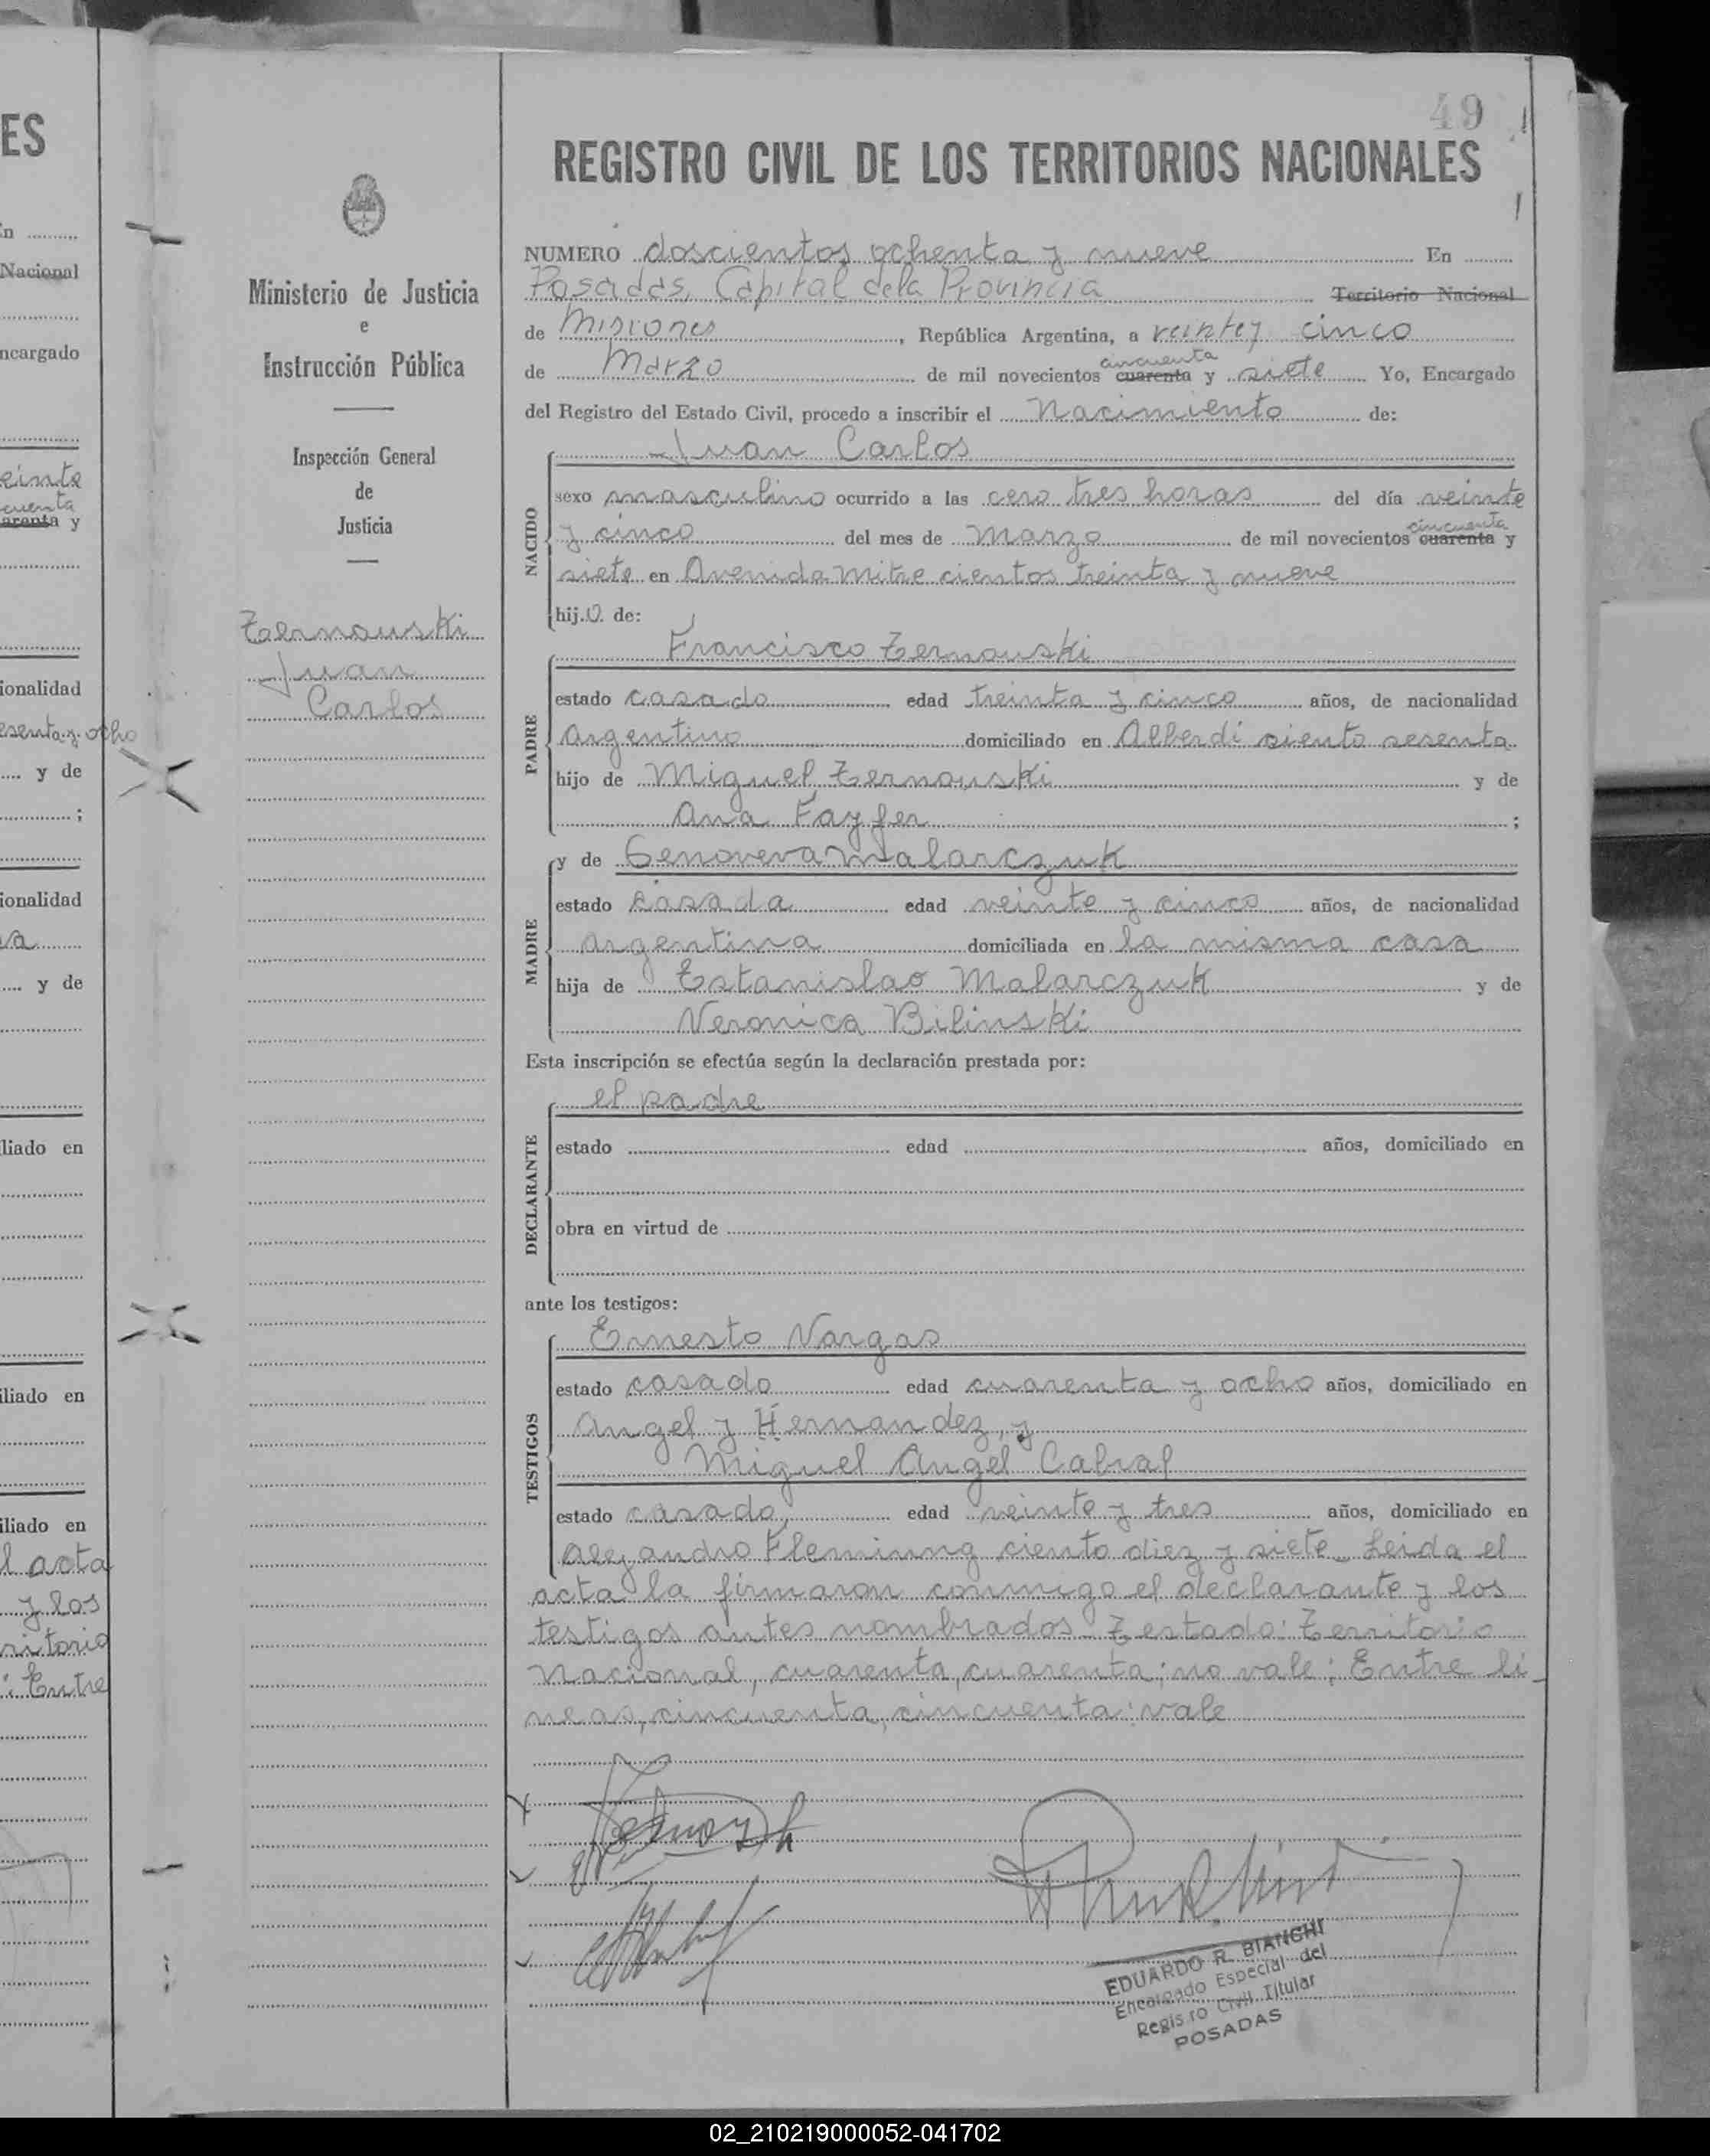 49
REGISTRO CIVIL DE LOS TERRITORIOS NACIONALES
Ministerio de Justicia
e
Instrucción Pública
Inspección General
de
Justicia
Zernouski
Juan
Carlos
NUMERO doscientos ochenta y nueve En
Posadas, Capital de la Provincia Territorio Nacional
de Misiones, República Argentina, a veinte y cinco
de Marzo de mil novecientos cuarenta cincuenta y siete Yo, Encargado
del Registro del Estado Civil, procedo a inscribir el Nacimiento de:
NACIDO
Juan Carlos
sexo masculino ocurrido a las cero tres horas del día veinte
y cinco del mes de Marzo de mil novecientos cuarenta cincuenta y
siete en Avenida Mitre cientos treinta y nueve
hijo de:
PADRE
Francisco Zernouski
estado casado edad treinta y cinco años, de nacionalidad
argentino domiciliado en Alberdi siento sesenta
hijo de Miguel Zernouski y de
Ana Fayfer ;
MADRE
y de Genoveva Malarczuk
estado casada edad veinte y cinco años, de nacionalidad
argentina domiciliada en la misma casa
hija de Estanislao Malarczuk y de
Veronica Bilinski
Esta inscripción se efectúa según la declaración prestada por:
DECLARANTE
el padre
estado edad años, domiciliado en
obra en virtud de
ante los testigos:
TESTIGOS
Ernesto Vargas
estado casado edad cuarenta y ocho años, domiciliado en
Angel y Hernandez, y
Miguel Angel Cabral
estado casado, edad veinte y tres años, domiciliado en
Alejandro Fleminng ciento diez y siete_ Leida el
acta la firmaron conmigo el declarante y los
testigos antes nombrados. Testado: Territorio
Nacional, cuarenta, cuarenta: no vale; Entre li_
neas, cincuenta, cincuenta: vale
EDUARDO R. BIANCHI
Encargado Especial del
Registro Civil Titular
POSADAS
02_210219000052-041702